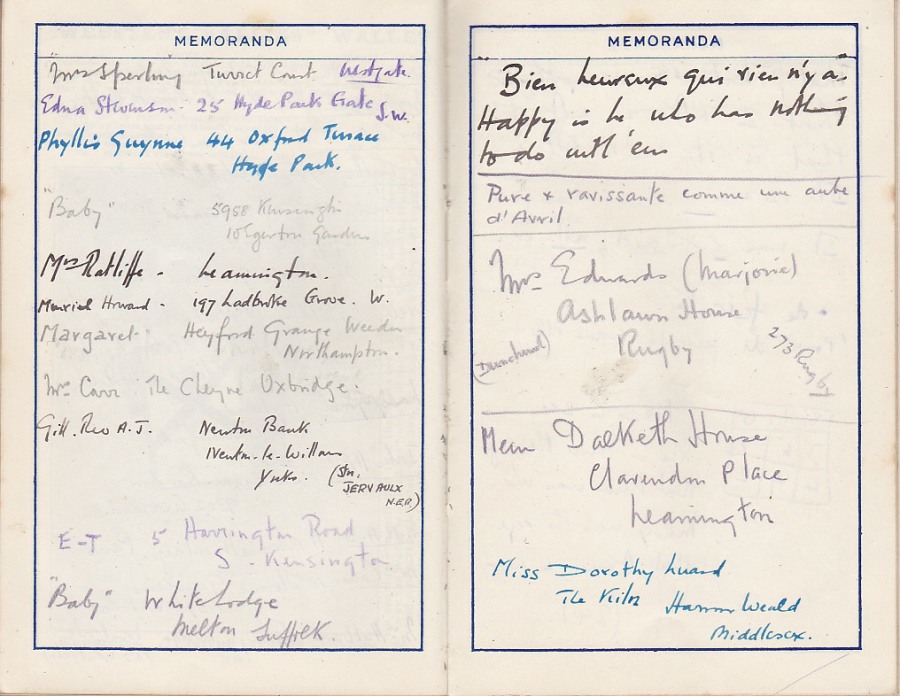 MEMORANDA
"Mrs Sperling Turret Court Westgate.
Edna Stevenson. 25 Hyde Park Gate S.W.
Phyllis Guynne 44 Oxford Terrace
Hyde Park.
"Baby" 5958 Kensington
10 Egerton Gardens
Mrs Ratliffe. Leamington.
Muriel Howard. 197 Ladbroke Grove. W.
Margaret. Heyford Grange Weedon
Northampton.
Mrs Carr The Cheyne Uxbridge.
Gill. Rev A.J. Newton Bank
Newton-le-Willows
Yorks. (Stn.
JERVAULX
N.E.R.)
E-T 5 Harrington Road
S. Kensington
"Baby" White Lodge
Melton Suffolk.
MEMORANDA
"Bien heureux qui rien n'y a"
Happy is he who has nothing
to do with 'em
Pure & ravissante comme une aube
d'Avril
Mrs Edwards (Marjorie)
Ashlawn House
(Dunchurch) Rugby 273 Rugby
Mem Dalketh House
Clarendon Place
Leamington
Miss Dorothy Luard
The Kiln Harrow Weald
Middlesex.